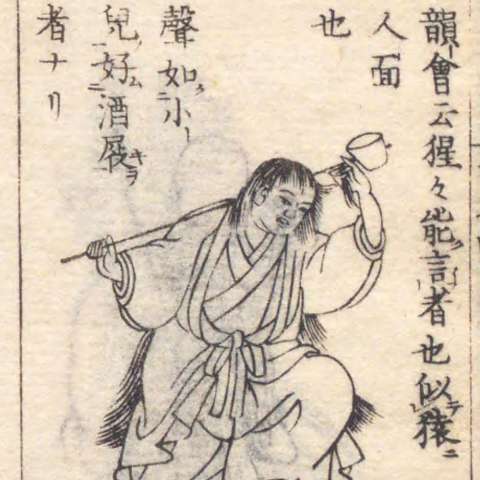 韻會云猩々能言者也似猿ニ
人面
也
聲如小
兒好酒屐
者ナリ